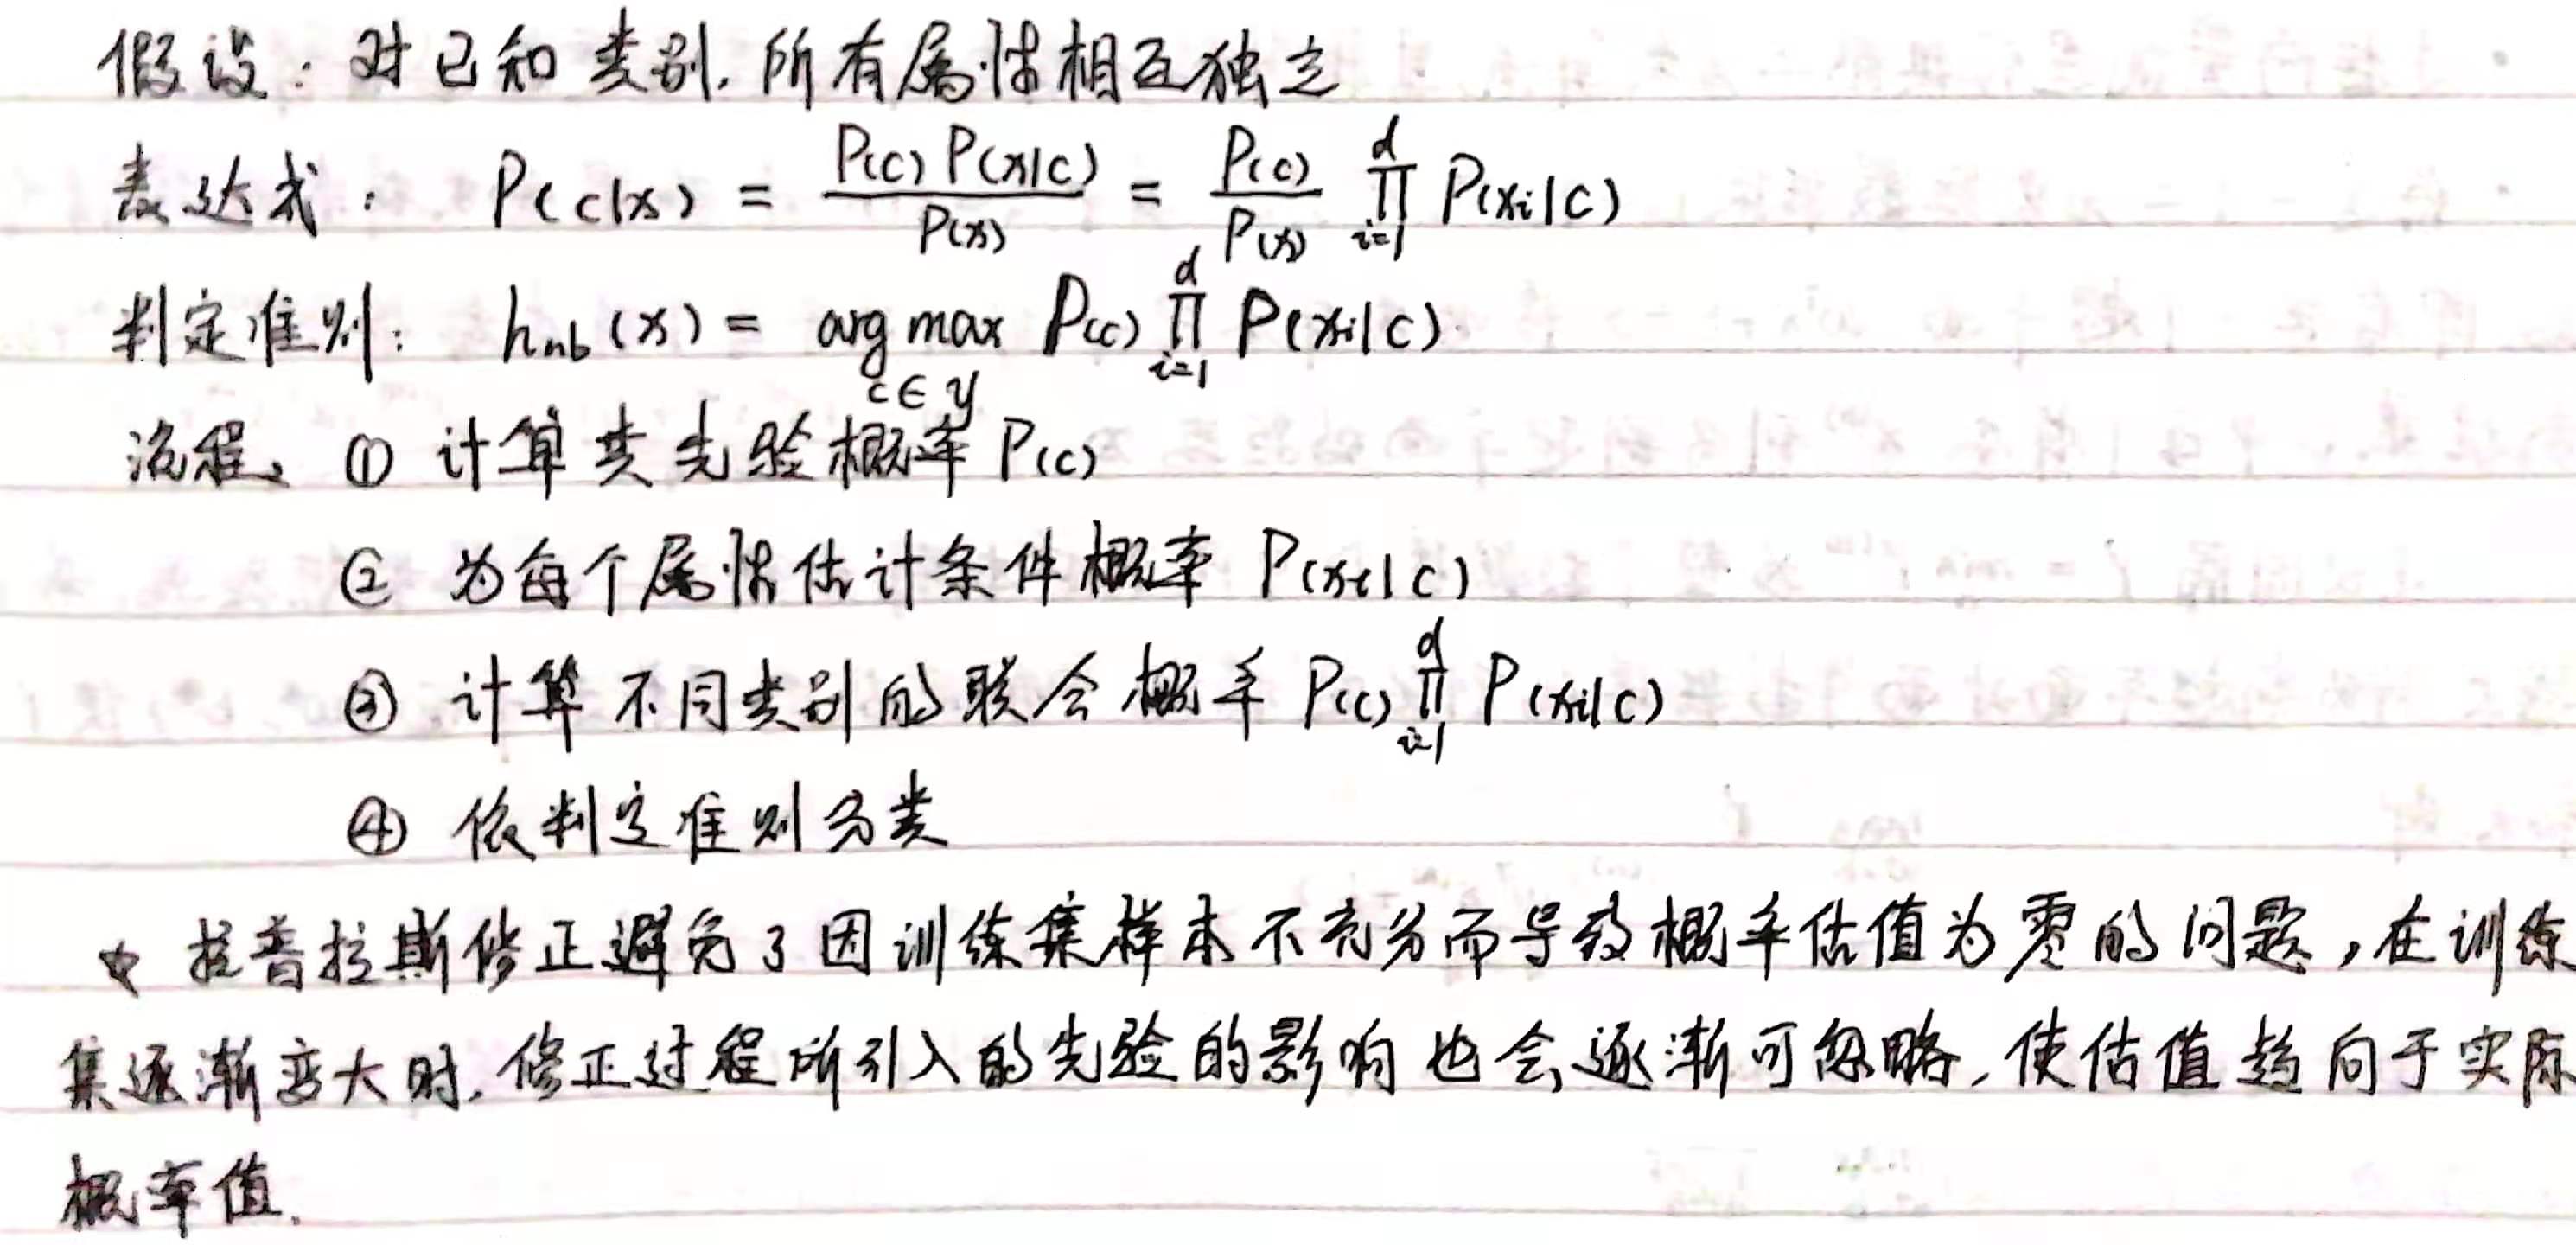 假设：对已知类别，所有属性相互独立
表达式： P(c|x) = \frac{P(c) P(x|c)}{P(x)} = \frac{P(c)}{P(x)} \prod_{i=1}^{d} P(x_i|c)
判定准则： h_{nb}(x) = \arg\max_{c \in y} P(c) \prod_{i=1}^{d} P(x_i|c)
流程、① 计算类先验概率 P(c)
② 为每个属性估计条件概率 P(x_i|c)
③ 计算不同类别的联合概率 P(c) \prod_{i=1}^{d} P(x_i|c)
④ 依判定准则分类
☆ 拉普拉斯修正避免了因训练集样本不充分而导致概率估值为零的问题，在训练
集逐渐变大时，修正过程所引入的先验的影响也会逐渐可忽略，使估值趋向于实际
概率值.